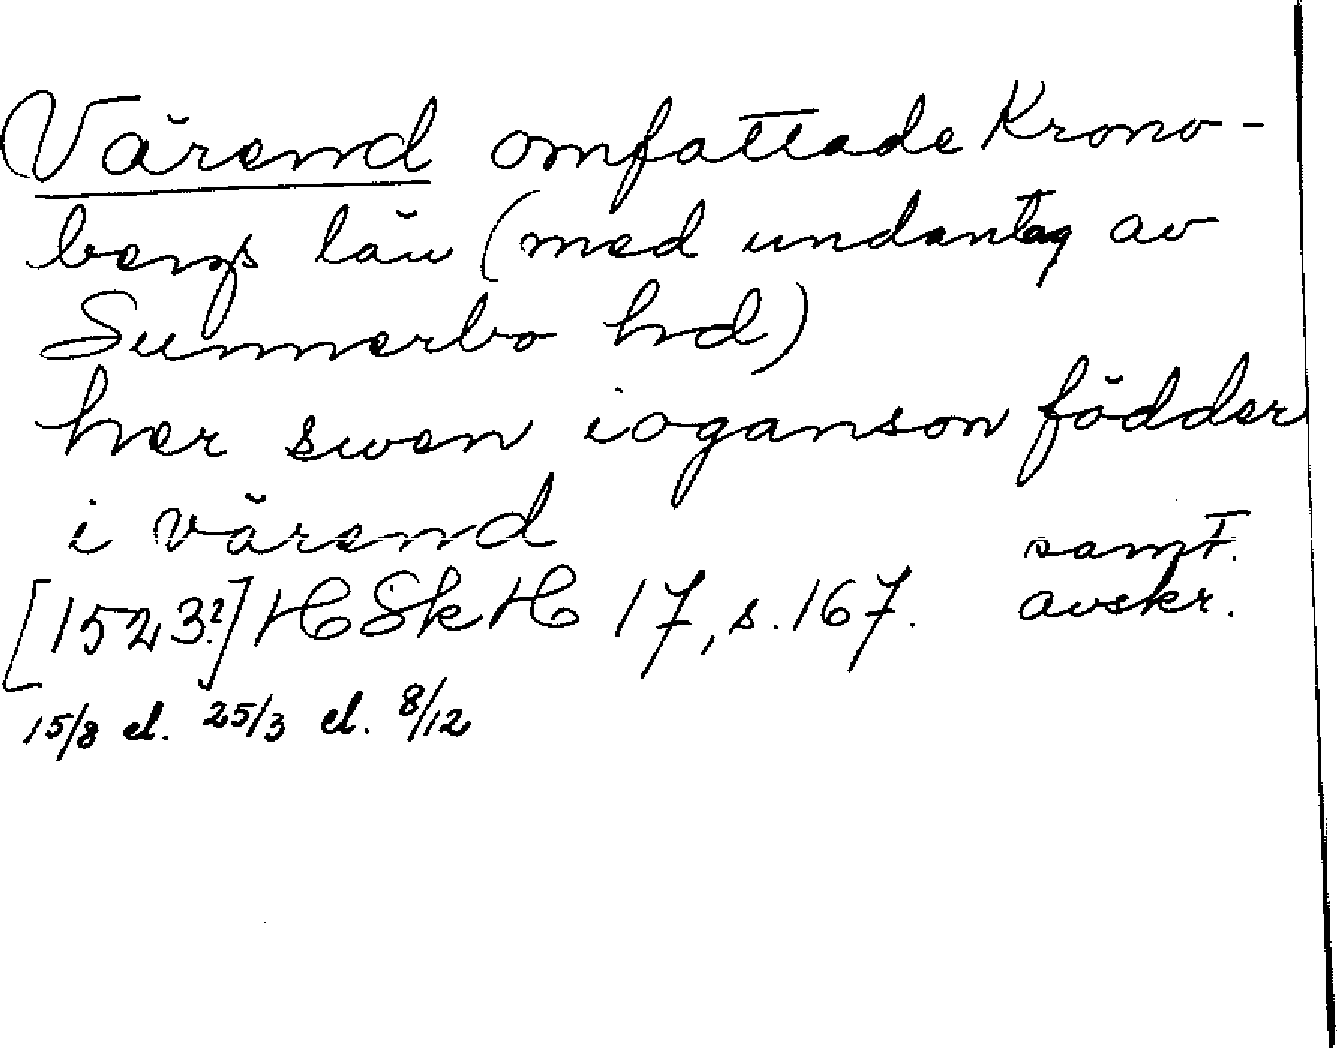 Värend omfattade Krono-
bergs län (med undantag av
Sunnerbo hd)
her swen ioganson födder
i värend
samt.
[1523?] HSkH 17, s. 167. avskr.
15/8 el. 25/3 el. 8/12